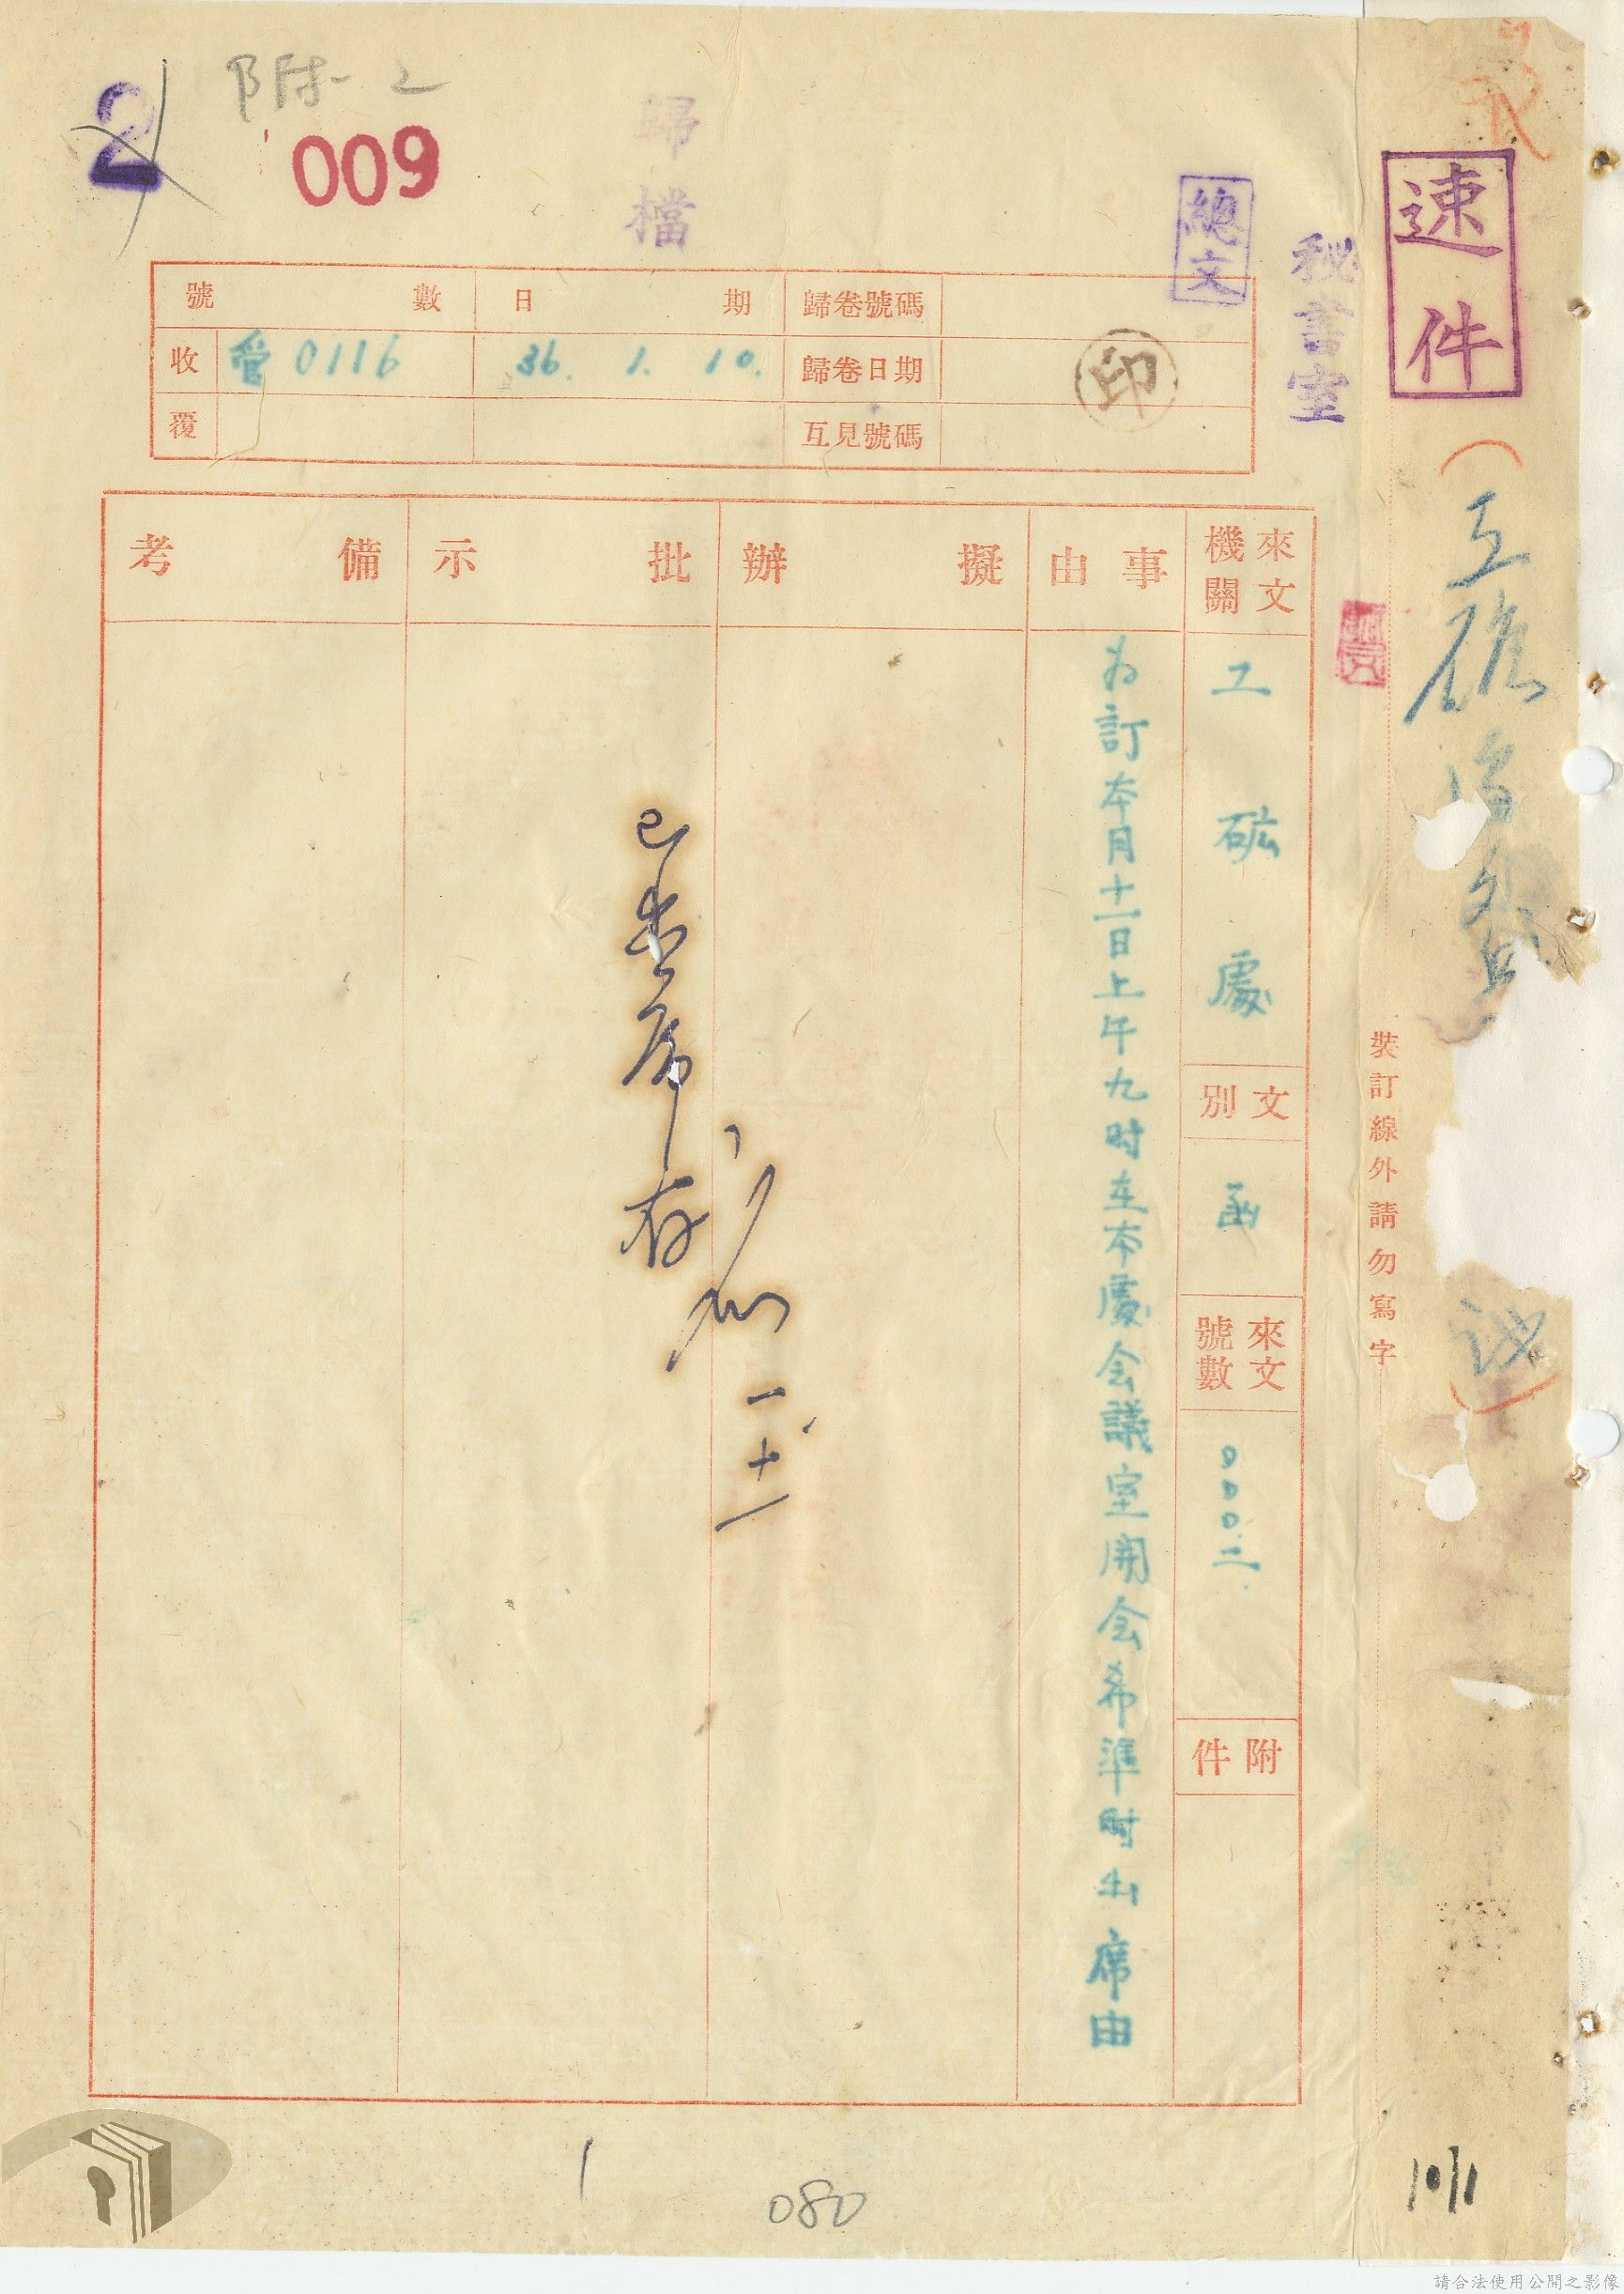 附-2
2
009
歸檔
總文
秘書室
速件
號數
日期
歸卷號碼
收
管0116
36. 1. 10.
歸卷日期
印
覆
互見號碼
來文機關
工砿處
文別
函
來文號數
000二
附件
事由
为訂本月十一日上午九时在本處会議室開会希準时出席由
擬辦
批示
已出席
存
一
十一
備考
裝訂線外請勿寫字
10/1
1
080
請合法使用公開之影像